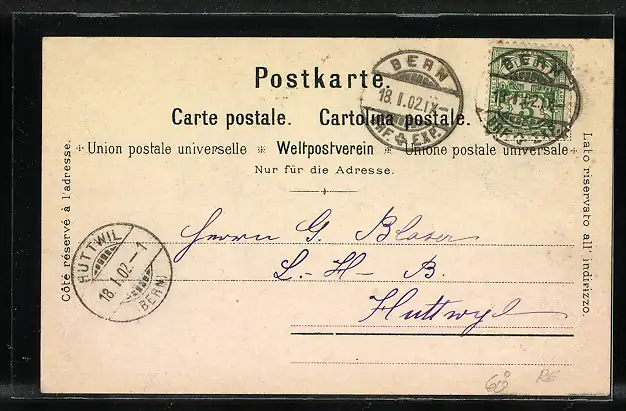 Postkarte.
Carte postale. Cartolina postale.
Union postale universelle * Weltpostverein * Unione postale universale
Nur für die Adresse.
Côté réservé à l'adresse.
Lato riservato all' indirizzo.
BERN
18.I.02.IX-
BRF. EXP.
BERN
18.I.02.IX-
HUTTWIL
18.I.02.-1
(BERN)
Herrn G. Blaser
L.- H- B.
Huttwyl
60